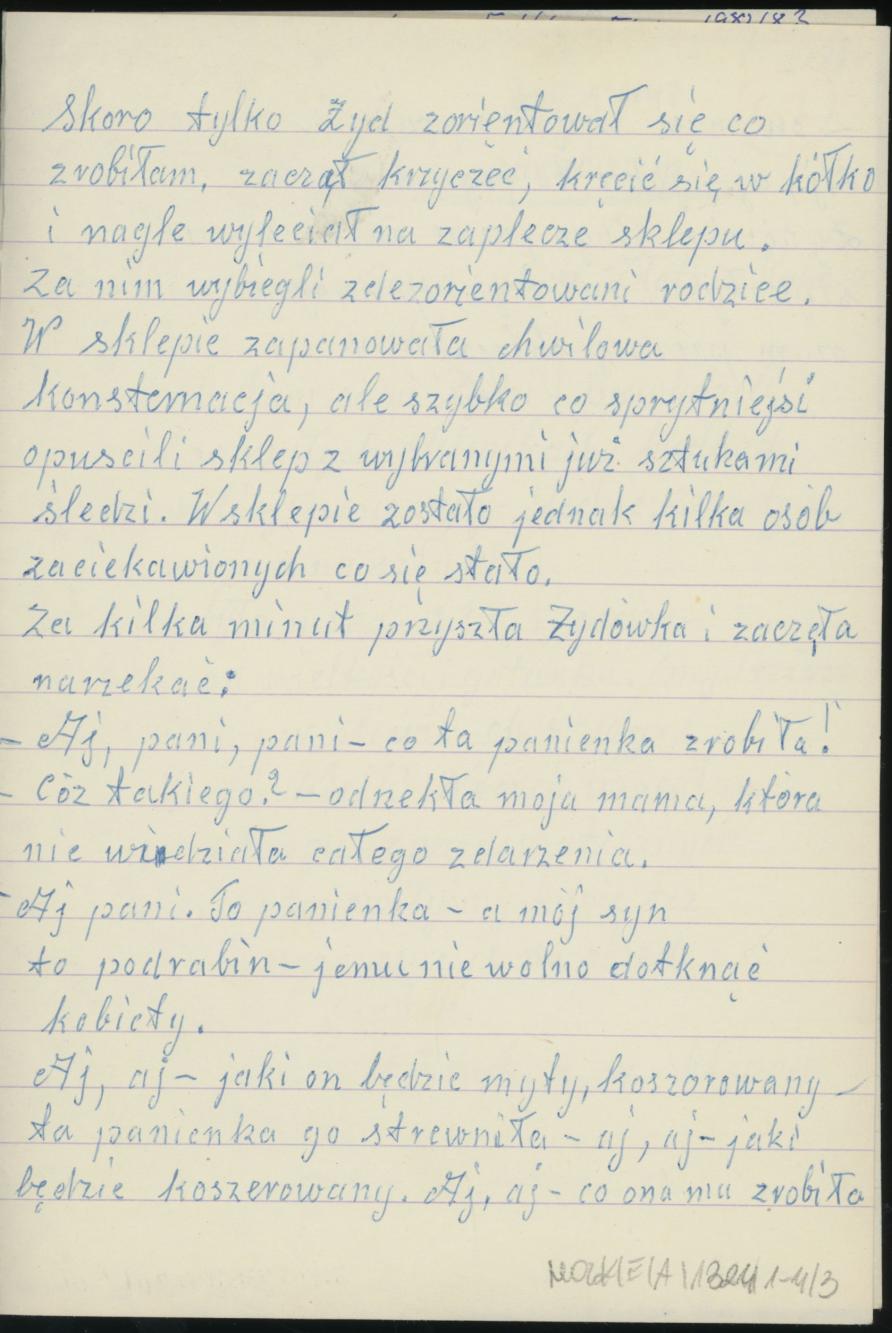 Skoro tylko Żyd zorientował się co
zrobiłam, zaczął krzyczeć, kręcić się w kółko
i nagle wyleciał na zaplecze sklepu.
Za nim wybiegli zdezorientowani rodzice.
W sklepie zapanowała chwilowa
konsternacja, ale szybko co sprytniejsi
opuscili sklep z wybranymi już sztukami
śledzi. W sklepie zostało jednak kilka osób
zaciekawionych co się stało.
Za kilka minut przyszła Żydówka i zaczęła
narzekać:
– Aj, pani, pani – co ta panienka zrobiła!
– Cóż takiego? – odrzekła moja mama, która
nie widziała całego zdarzenia.
– Aj pani. To panienka – a mój syn
to podrabin – jemu nie wolno dotknąć
kobiety.
Aj, aj – jaki on będzie myty, koszorowany –
ta panienka go strewniła – aj, aj – jaki
będzie koszerowany. Aj, aj – co ona mu zrobiła